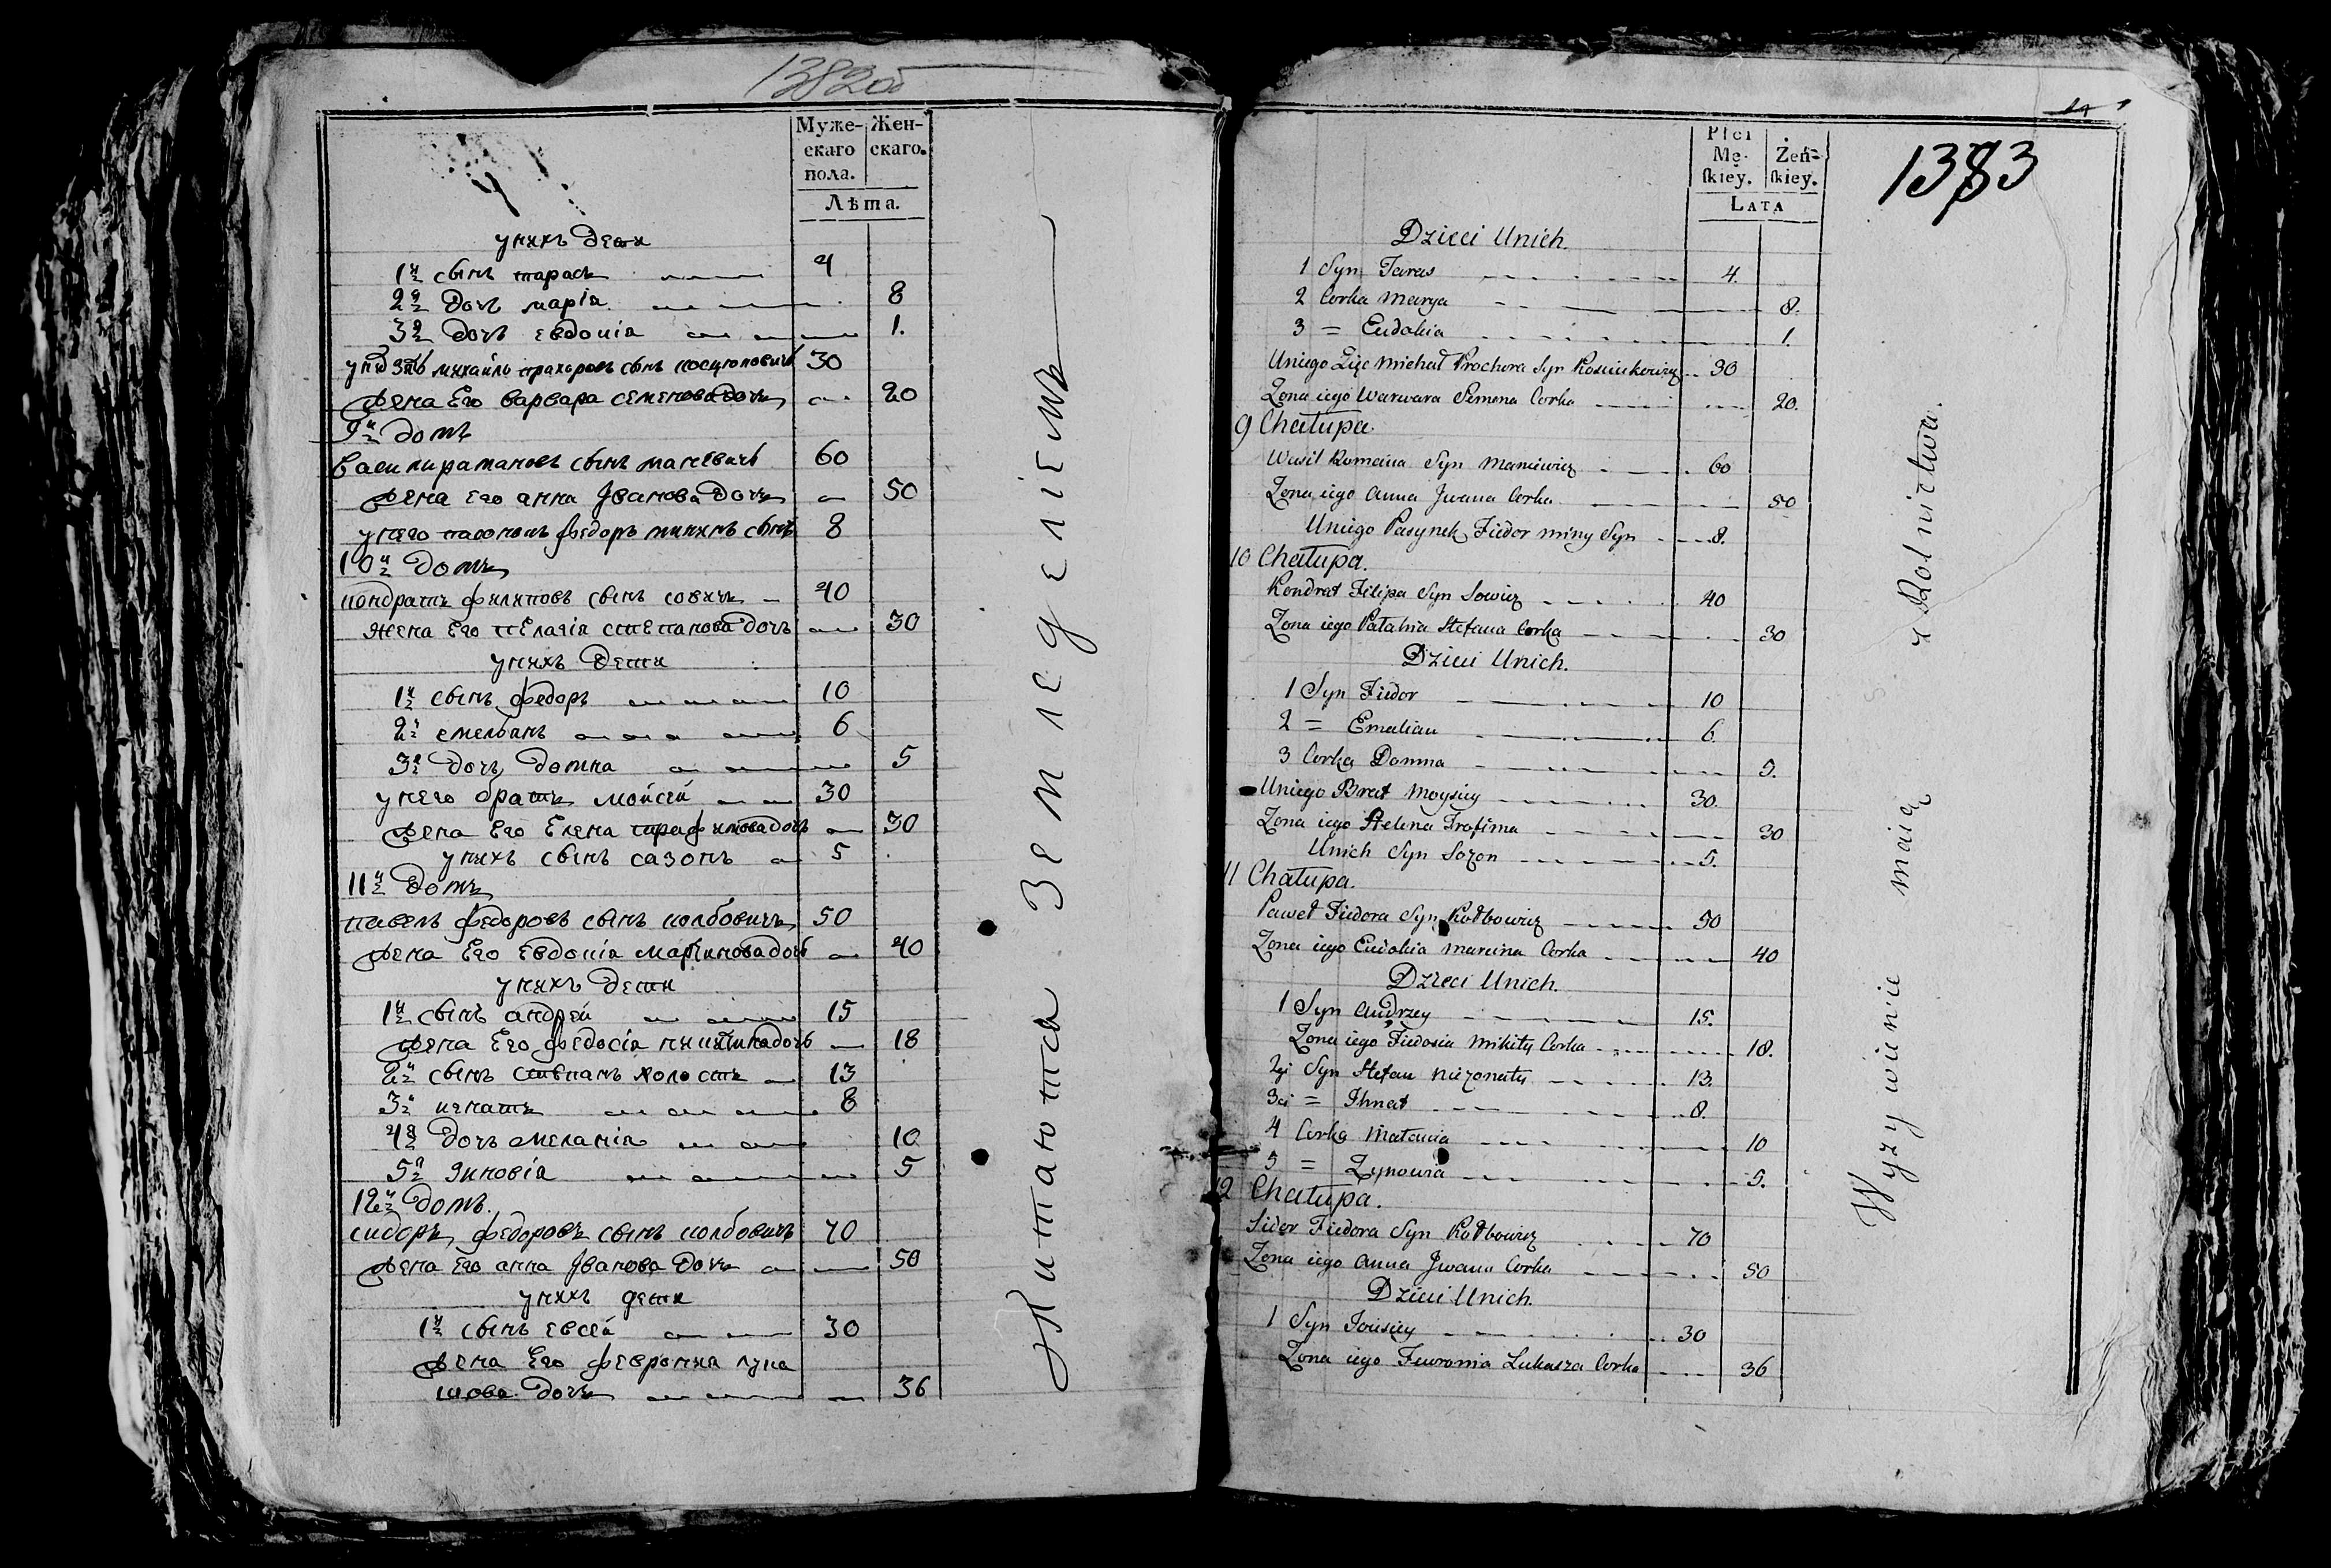 1382об
Муже-
скаго
пола.
Жен-
скаго.
Лѣта.
у нихъ дети
1й сынъ тарасъ 4
2я дочь марiа 8
3я дочь евдокiа 1.
у него зять михайло прахоровъ сынъ косцюковичъ 30
жена Его варвара семенова дочь 20
9й домъ
василь рамановъ сынъ маневичъ 60
жена его анна Iванова дочь 50
у него пасынокъ федоръ мининъ сынъ 8
10й домъ
кондратъ филиповъ сынъ совичъ 40
жена Его пелагiа степанова дочь 30
у нихъ дети
1й сынъ федоръ 10
2й емельянъ 6
3я дочь домна 5
у него братъ мойсей 30
жена Его Елена трафимова дочь 30
у нихъ сынъ сазонъ 5
11й домъ
павелъ федоровъ сынъ колбовичъ 50
жена Его евдокiа мартинова дочь 40
у нихъ дети
1й сынъ андрей 15
жена Его федосiа никитина дочь 18
2й сынъ степанъ холостъ 13
3й игнатъ 8
4я дочь меланiа 10
5я зиновiа 5
12й домъ
сидоръ федоровъ сынъ колбовичъ 70
жена Его анна Iванова дочь 50
у нихъ дети
1й сынъ евсей 30
жена Его февронiа лука
шова дочь 36
Питаются Земледелiемъ
1383
Płci
Mę-
skiey.
Żeń-
skiey.
LATA
Dzieci Unich.
1 Syn Taras 4.
2 Corka Marya 8.
3 = Eudokia 1.
Uniego Zięc Michał Prochora Syn Kosciukowicz 30
Zona iego Warwara Semena Corka 20.
9 Chałupa.
Wasil Romana Syn Maniewicz 60
Zona iego Anna Jwana Corka 50
Uniego Pasynek Fiedor Miny Syn 8.
10 Chałupa.
Kondrat Filipa Syn Sowicz 40
Zona iego Pałahia Stefana Corka 30
Dzieci Unich.
1 Syn Fiedor 10
2 = Emelian 6.
3 Corka Domna 5.
Uniego Brat Moysiey 30.
Zona iego Helena Trofima 30
Unich Syn Sozon 5.
11 Chałupa.
Paweł Fiedora Syn Kołbowicz 50
Zona iego Eudokia Marcina Corka 40
Dzieci Unich.
1 Syn Andrzey 15.
Zona iego Fiedosia Mikity Corka 18.
2gi Syn Stefan niezonaty 13.
3ci = Ihnat 8.
4 Corka Małania 10
5 = Zynowia 5.
12 Chałupa.
Sidor Fiedora Syn Kołbowicz 70
Zona iego Anna Jwana Corka 50
Dzieci Unich.
1 Syn Jowsiey 30
Zona iego Fewronia Łukasza Corka 36
Wyzywienie maią z Rolnictwa.